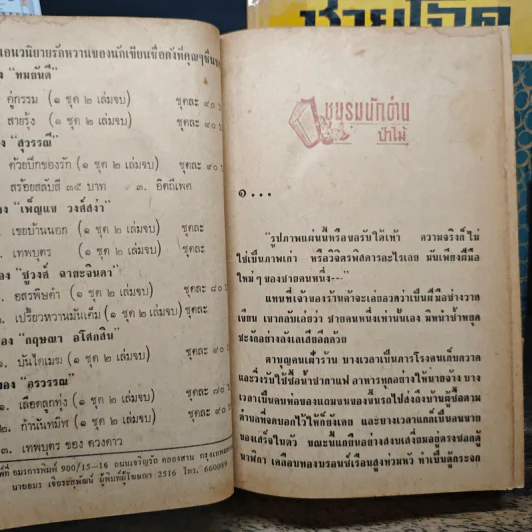 ชายโฉด
แนวนิยายรักหวานของนักเขียนชื่อดังที่คุณๆชื่น
"ทมยันตี"
คู่กรรม (๑ ชุด ๒ เล่มจบ) ชุดละ ๙๐ บ
สายรุ้ง (๑ ชุด ๒ เล่มจบ)
ง "สุวรรณี"
ด้วยปีกของรัก (๑ ชุด ๒ เล่มจบ) ชุดละ ๙๐ บ
สร้อยสลับสี ๓๕ บาท ๓. อิตถีเพศ
อง "เพ็ญแข วงศ์สง่า"
. เขยบ้านนอก (๑ ชุด ๒ เล่มจบ) ชุดละ
. เทพบุตร (๑ ชุด ๒ เล่มจบ) ชุดละ
อง "ชูวงศ์ ฉายะจินดา"
. อสรพิษดำ (๑ ชุด ๒ เล่มจบ) ชุดละ ๘๐
. เปรี้ยวหวานมันเค็ม (๑ ชุด ๒ เล่มจบ) ชุดละ
ของ "กฤษณา อโศกสิน"
๑. บันไดเมฆ (๑ ชุด ๒ เล่มจบ) ชุดละ ๙๐ บ
ของ "อรวรรณ"
๑. เลือดลูกทุ่ง (๑ ชุด ๒ เล่มจบ) ชุดละ ๘๐
๒. กำนันทมิฬ (๑ ชุด ๒ เล่มจบ) ชุดละ ๙๐
๓. เทพบุตร ของ ดวงดาว
พ์ที่ อมรการพิมพ์ 900/15-16 ถนนเจริญรัถ คลองสาน กรุงเทพ
นายอมร เจียระสุพัฒน์ ผู้พิมพ์ผู้โฆษณา 2516 โทร.
ชมรมนักอ่าน
ป่าไม้
๑...
"รูปภาพแผ่นนี้หรือขอรับใต้เท้า ความจริงก็ไม่
ใช่เป็นภาพเก่า หรือวิจิตรพิสดารอะไรเลย มันเพียงฝีมือ
ใหม่ๆของชายคนหนึ่ง--"
แทนที่เจ้าของร้านค้าจะเอ่ยอวดว่าเป็นฝีมือช่างวาด
เขียน เขากลับเอ่ยว่า ชายคนหนึ่งเท่านั้นเอง มิหนำซ้ำหยุด
ชะงักอย่างลังเลเสียอีกด้วย
ตาบุญคนเฝ้าร้าน บางเวลาเป็นภารโรงคนเก็บกวาด
และวิ่งรับใช้ซื้อน้ำชากาแฟ อาหารทุกอย่างให้นายจ้าง บาง
เวลาเป็นคนห่อของแถมขนของขึ้นรถไปส่งถึงบ้านผู้ซื้อตาม
ตำบลที่จดบอกไว้ให้ก็ยังเคย และบางเวลาแกก็เป็นคนขาย
ของเสร็จในตัว ขณะนี้แกยืนอย่างสงบเสงี่ยมอยู่ตรงซอกตู้
นาฬิกา เคลือบทองบรอนซ์เรือนสูงท่วมหัว ทำเป็นตู้กระจก